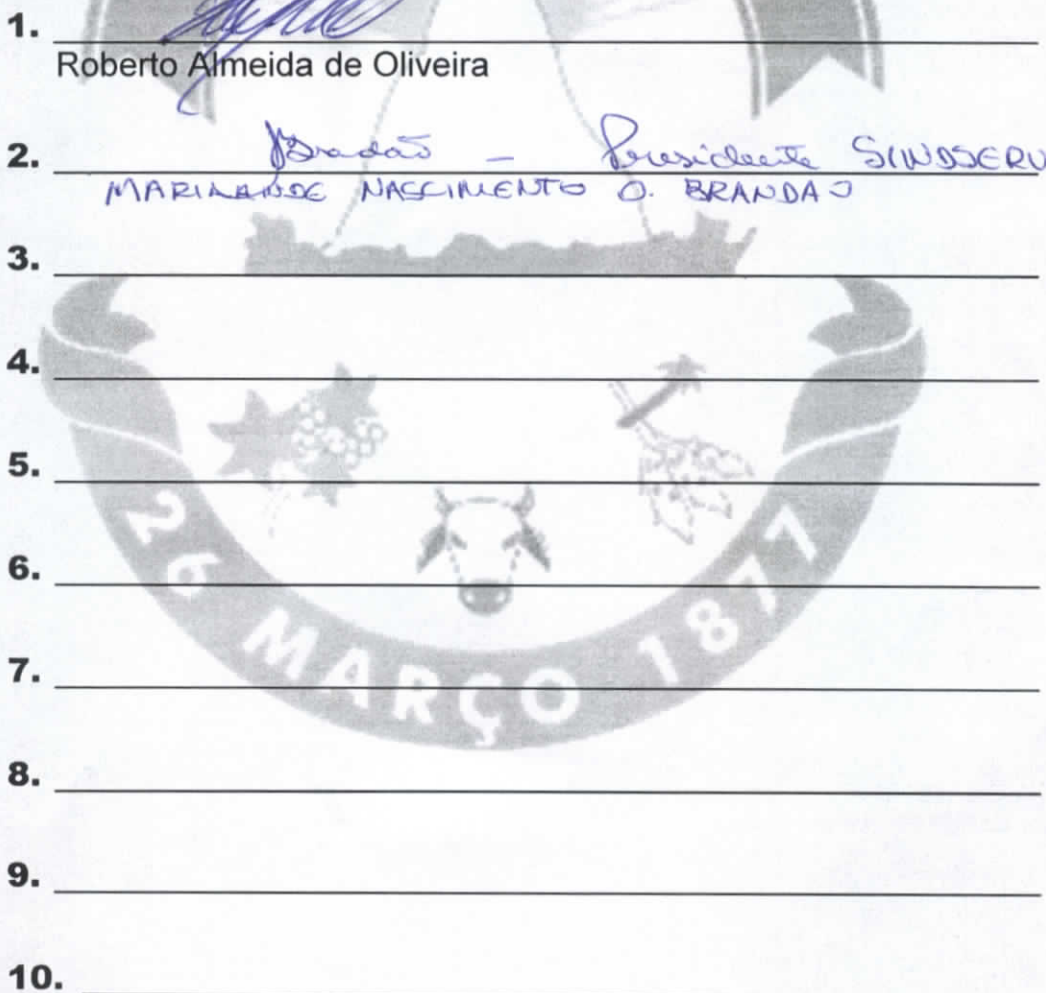 1.
Roberto Almeida de Oliveira
2. Brandão - Presidente SINDSERV
MARILANDE NASCIMENTO O. BRANDAO
3.
4.
5.
6.
7.
8.
9.
10.
26 MARÇO 1877